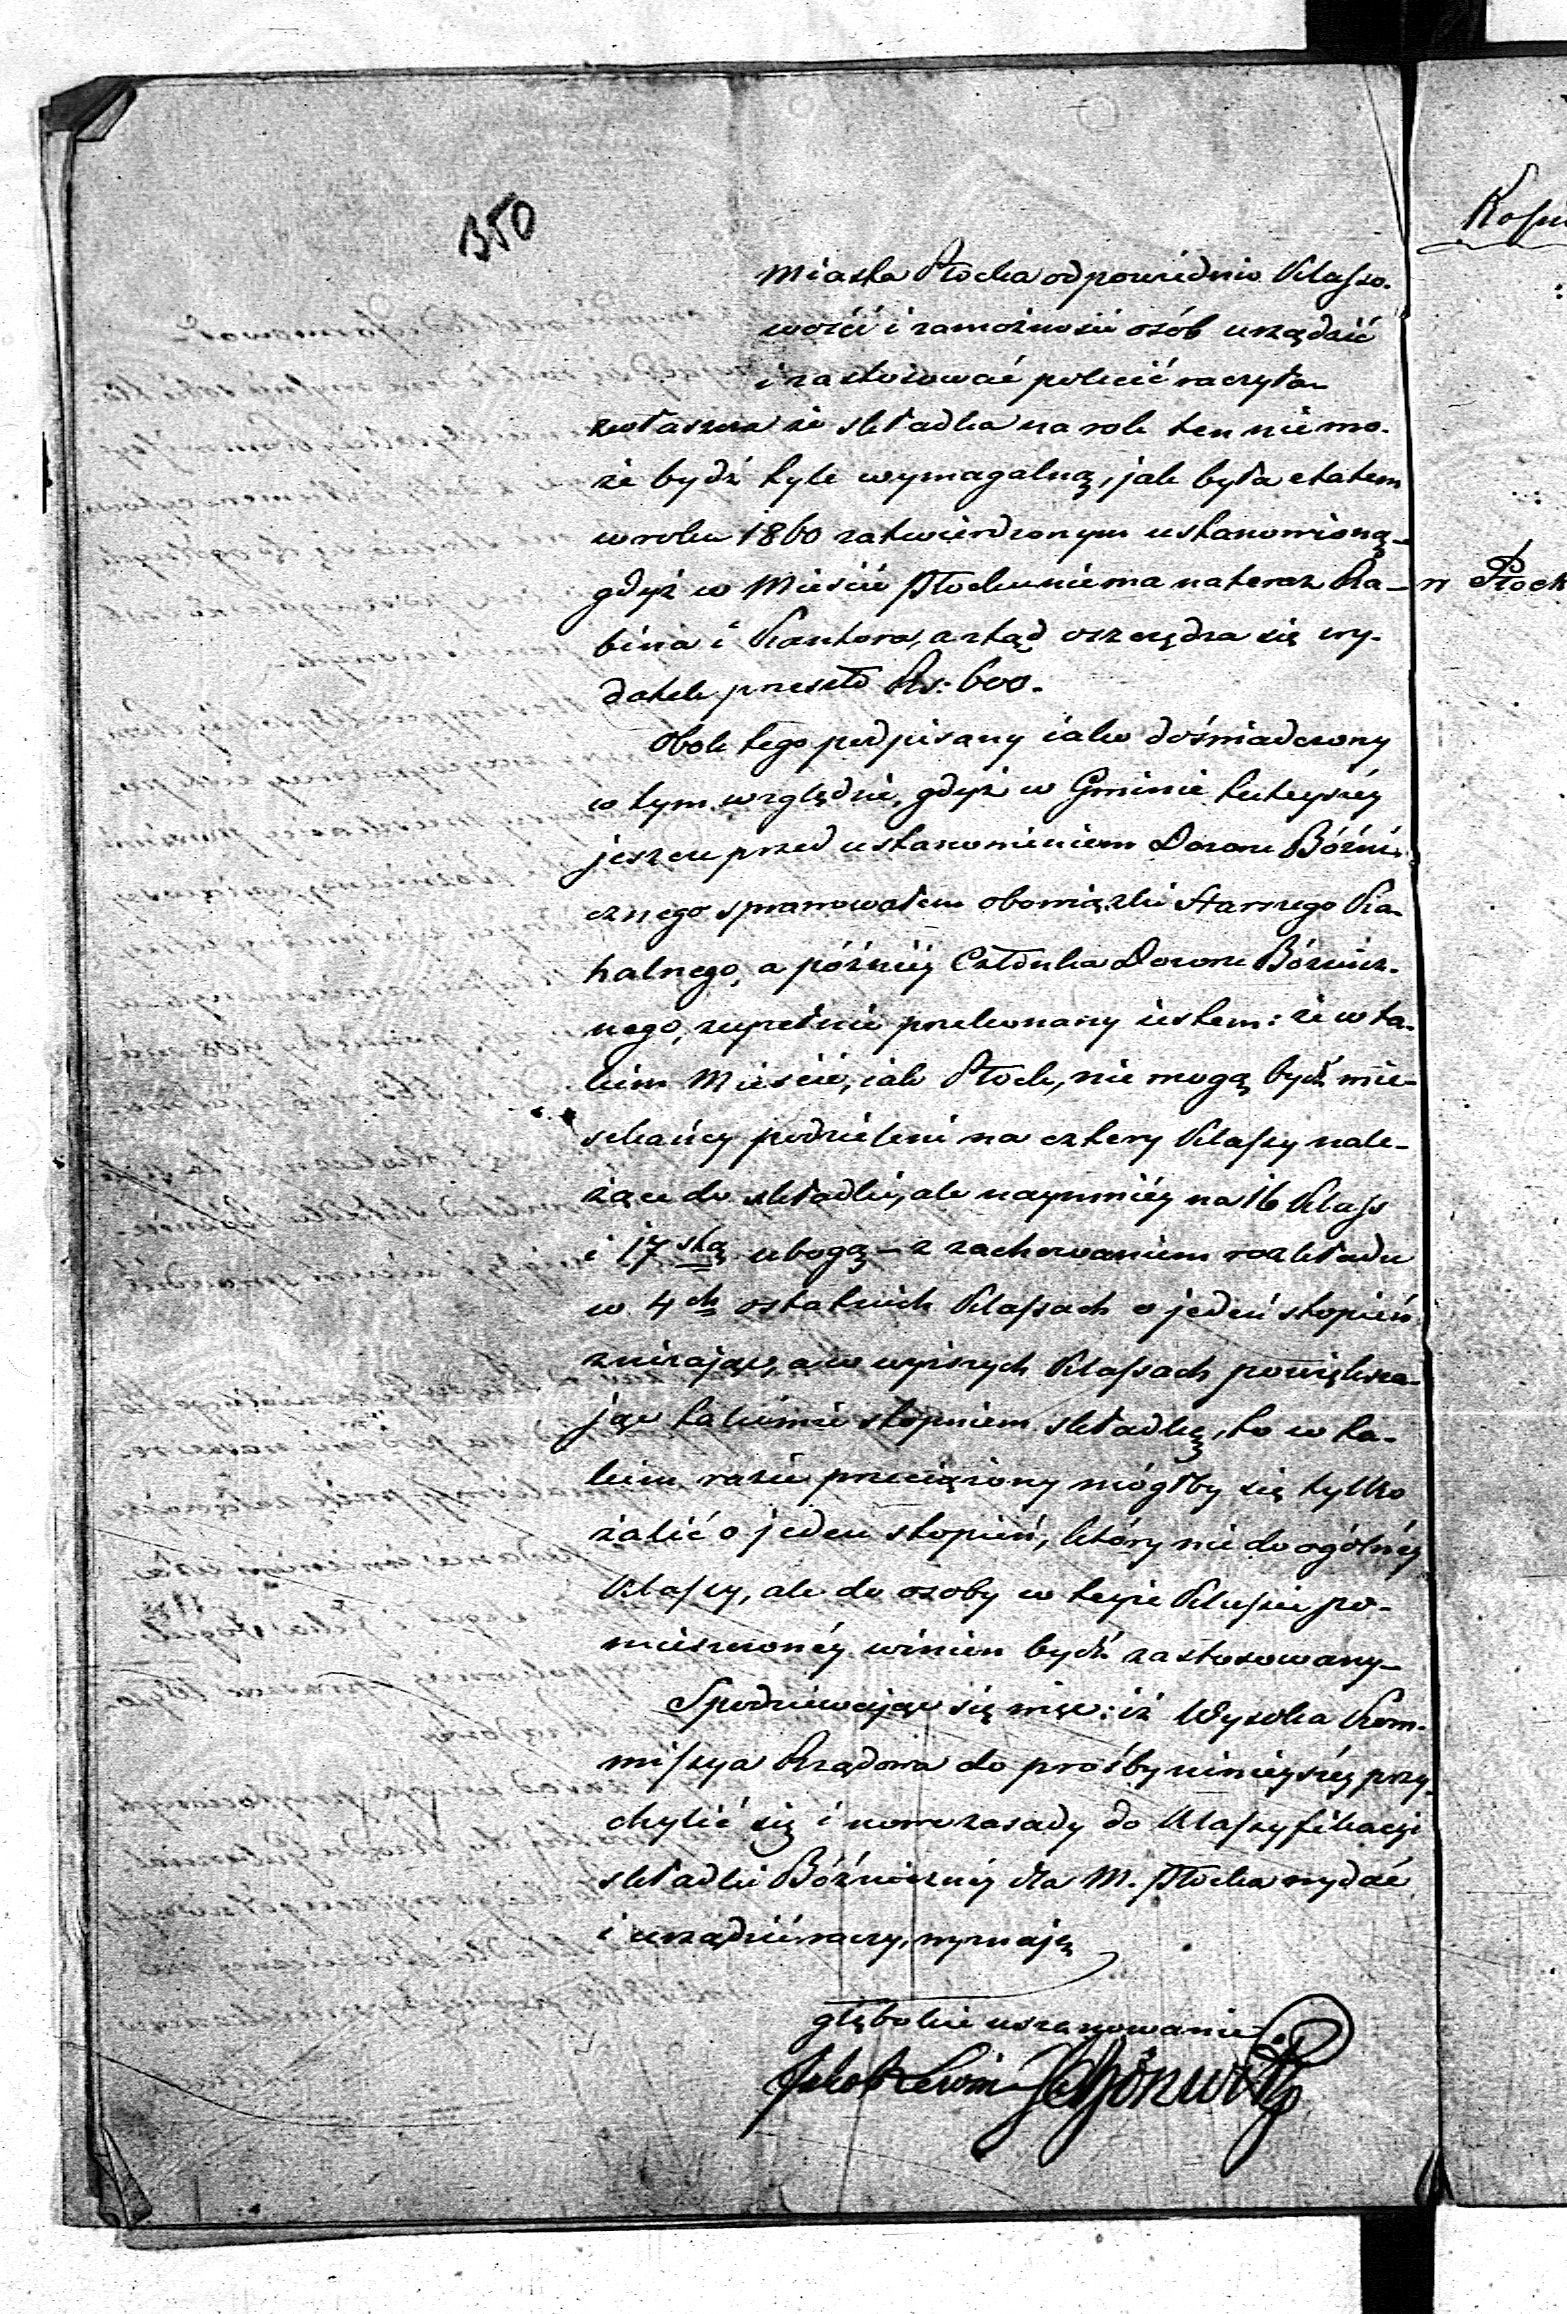 350
Miasta Płocka odpowiednio Klasso-
wości i zamożności osób urządzić
i zastosować polecić raczyła
zwłaszcza że składka na rok ten nie mo-
że bydź tyle wymagalną, jak była etatem
w roku 1860 zatwierdzonym ustanowioną
gdyż w Mieście Płocku niema nateraz Ra-
bina i Kantora, a ztąd oszczędza się wy-
datek przeszło Rs: 600.
Obok tego podpisany iako doświadczony
w tym względzie, gdyż w Gminie tuteyszéy
jeszcze przed ustanowieniem Dozoru Bóźni-
cznego sprawowałem obowiązki Starszego Ka-
halnego, a późniéy Członka Dozoru Bóżnicz-
nego, zupełnie przekonany iestem: że w ta-
kim Mieście, iak Płock, nie mogą bydź mie-
szkańcy podzieleni na cztery Klassy nale-
żące do składki, ale naymniéy na 16 Klass
i 17stą ubogą – z zachowaniem rozkładu
w 4ch ostatnich Klassach o jeden stopień
zniżając, a w wyższych Klassach powiększa-
jąc takiemże stopniem składkę, to w ta-
kim razie przeciążony mógłby się tylko
żalić o jeden stopień, który nie do ogólnéy
Klassy, ale do osoby w teyże Klassie po-
mieszczonéy winien bydź zastosowany –
Spodziewając się więc: iż Wysoka Kom-
missya Rządowa do prośby ninieyszéy przy-
chylić się i nowe zasady do Klassyfikacyi
składki Bóźniczney dla M. Płocka wydać
i urządzić raczy, wyznaję
głębokie uszanowanie
Kopia
w Płock